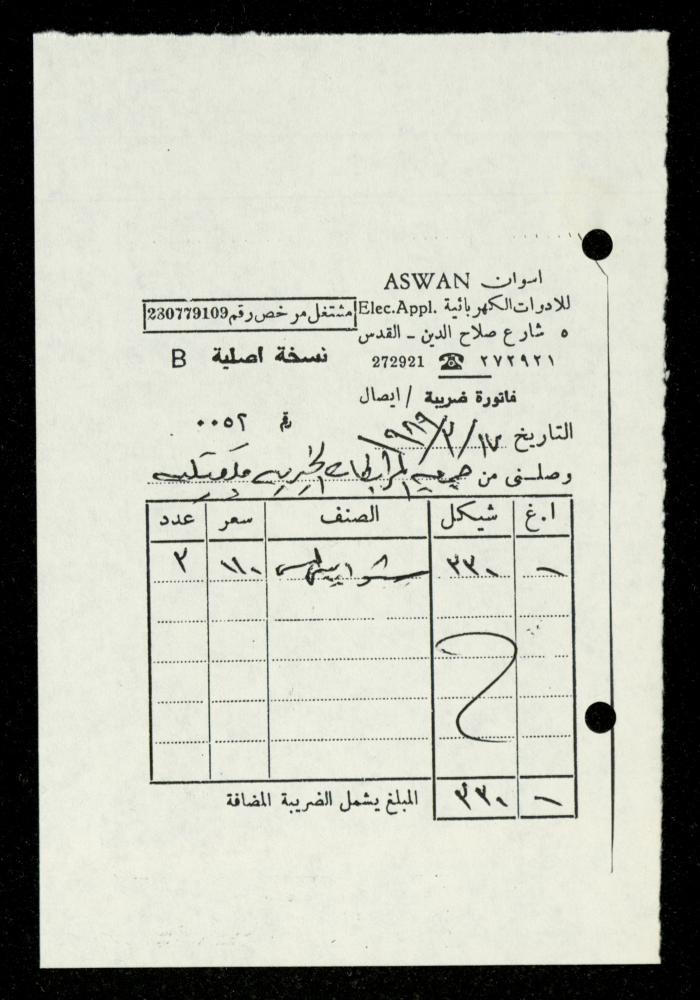 اسوان ASWAN
للادوات الكهربائية Elec.Appl.
مشتغل مرخص رقم 230779109
٥ شارع صلاح الدين - القدس
نسخة اصلية B
٢٧٢٩٢١ ☎ 272921
فاتورة ضريبة / ايصال
رقم ٠٠٥٢
التاريخ ١٩٨٩/٢/١٧
وصلني من جمعية المرابطات الخيرية قلقيلية
ا.غ شيكل الصنف سعر عدد
٣٣٠ ١١٠
المبلغ يشمل الضريبة المضافة
٣٣٠